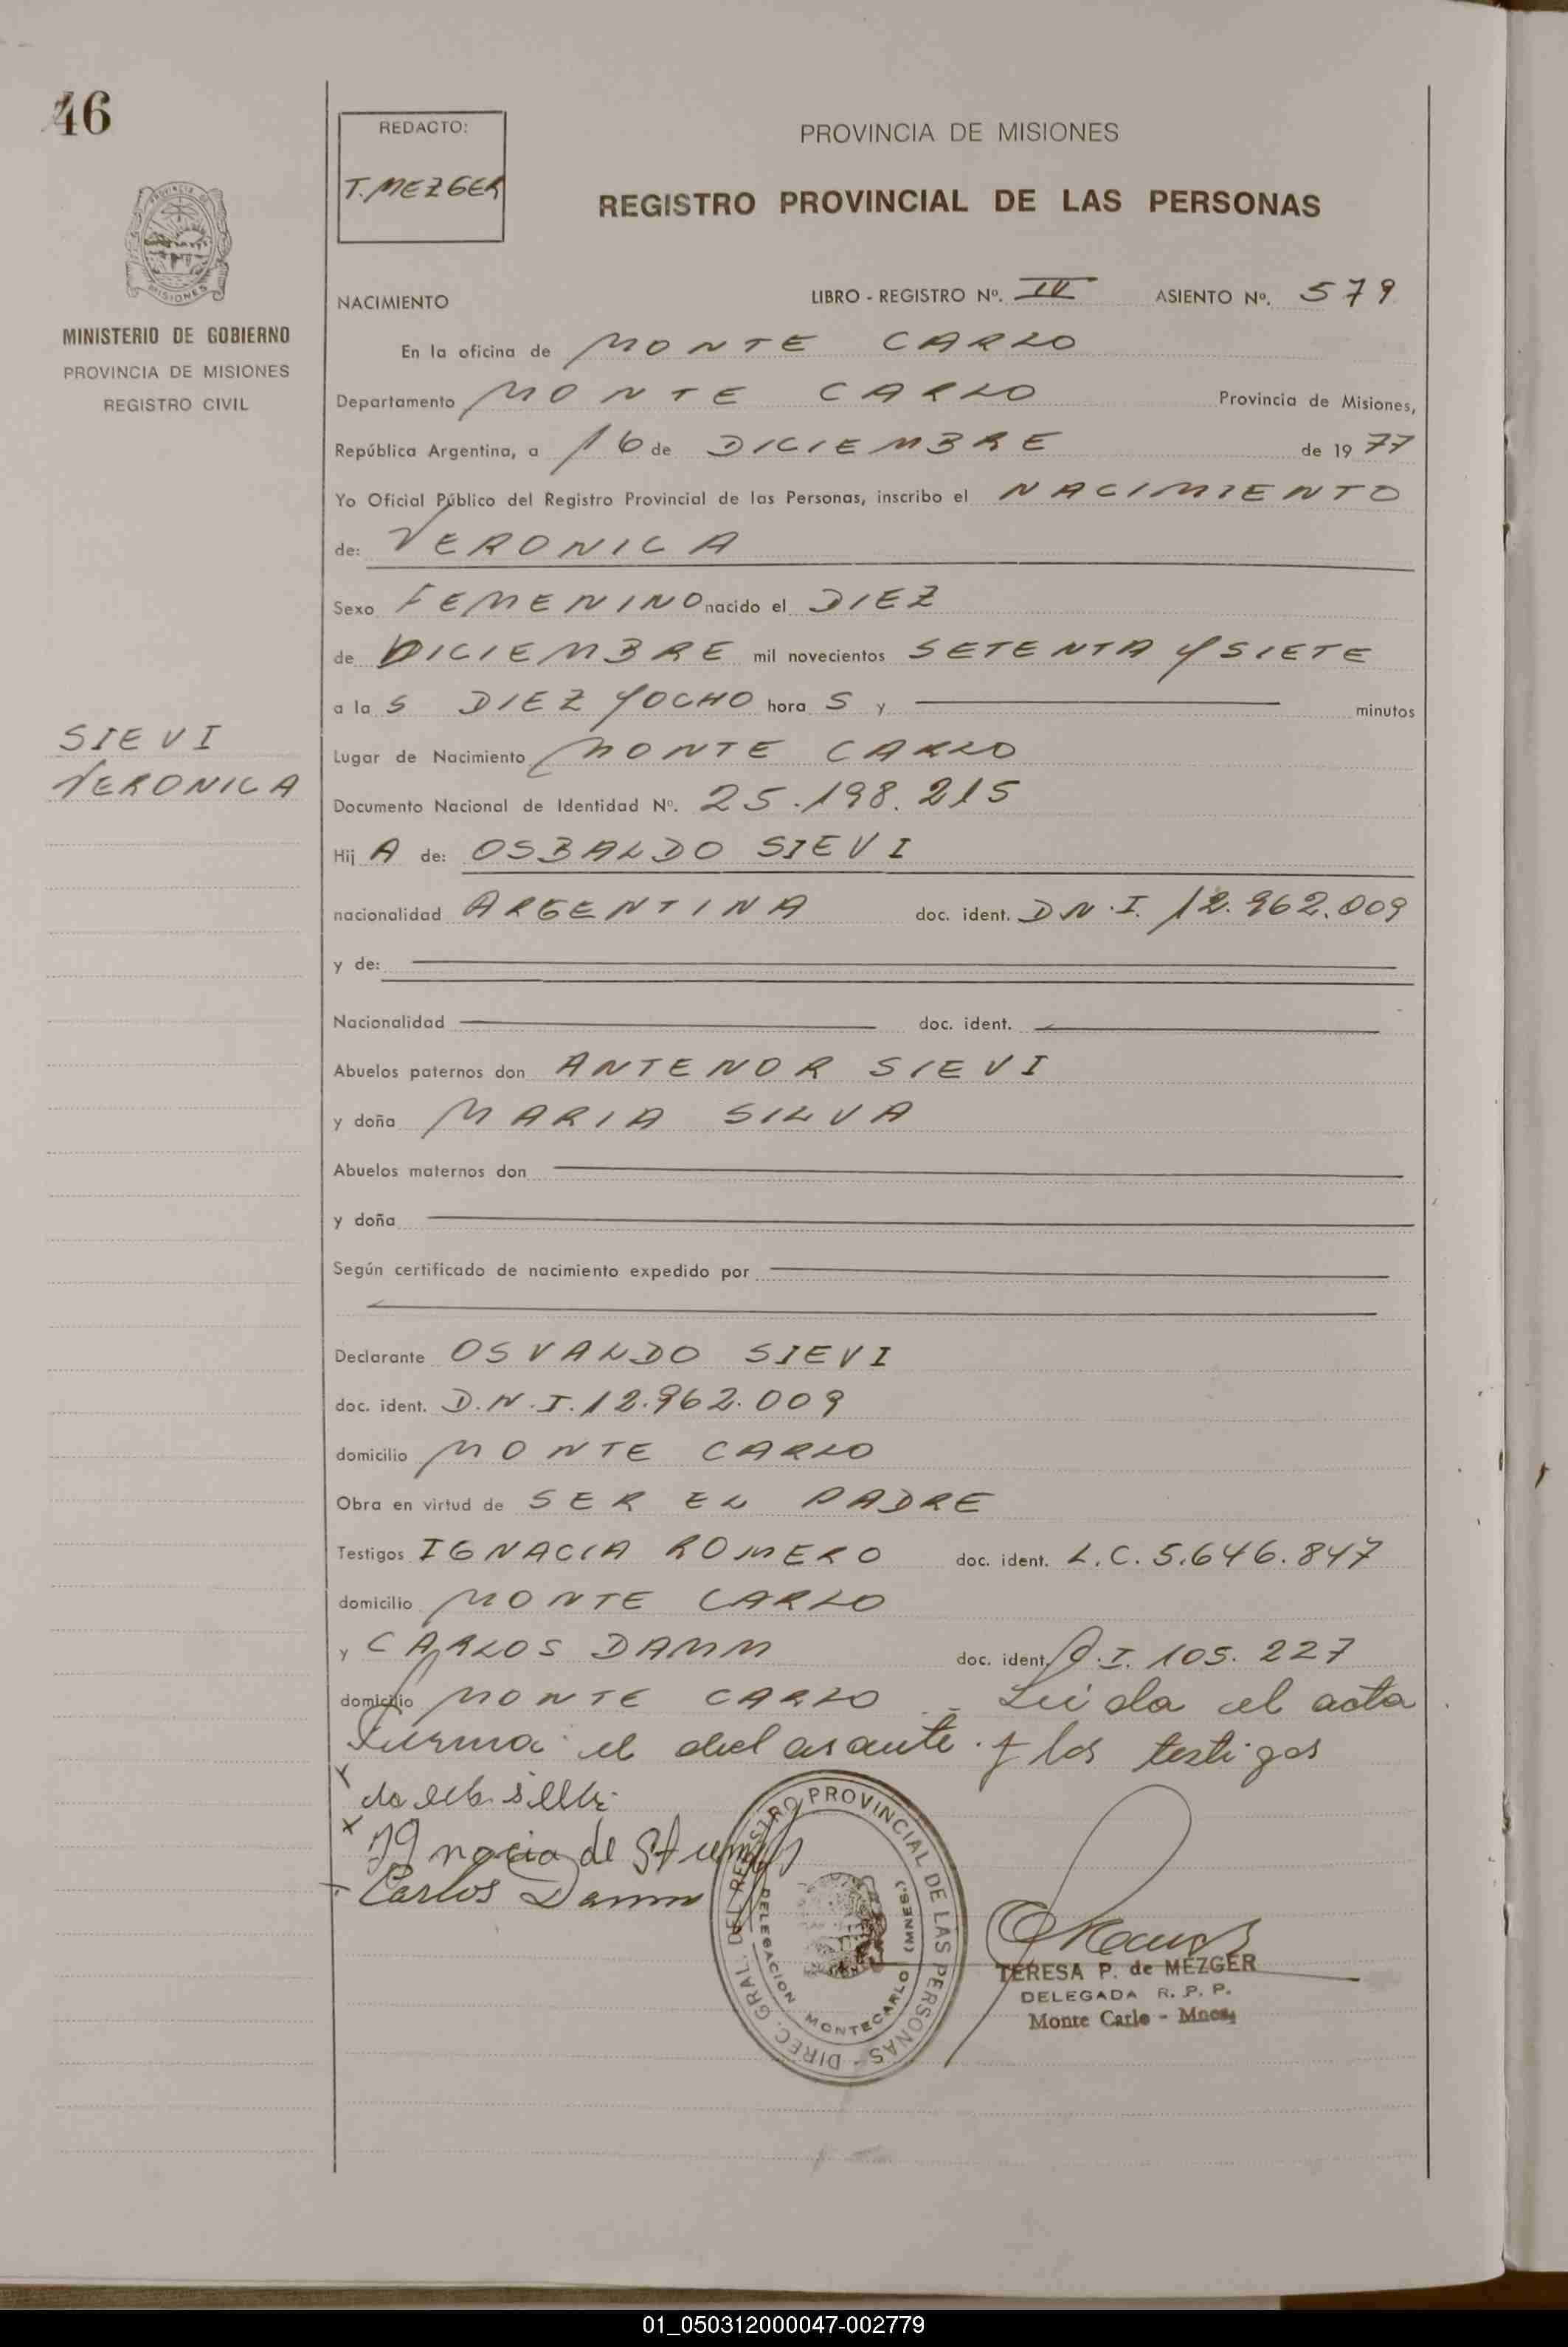 46
REDACTO:
T. MEZGER
PROVINCIA DE MISIONES
REGISTRO PROVINCIAL DE LAS PERSONAS
PROVINCIA
MISIONES
MINISTERIO DE GOBIERNO
PROVINCIA DE MISIONES
REGISTRO CIVIL
NACIMIENTO LIBRO - REGISTRO Nº. IV ASIENTO Nº. 579
En la oficina de MONTE CARLO
Departamento MONTE CARLO Provincia de Misiones,
República Argentina, a 16 de DICIEMBRE de 1977
Yo Oficial Público del Registro Provincial de las Personas, inscribo el NACIMIENTO
de: VERONICA
Sexo FEMENINO nacido el DIEZ
de DICIEMBRE mil novecientos SETENTA Y SIETE
a la S DIEZ Y OCHO hora S y minutos
SIEVI
VERONICA
Lugar de Nacimiento MONTE CARLO
Documento Nacional de Identidad Nº. 25.198.215
Hij A de: OSBALDO SIEVI
nacionalidad ARGENTINA doc. ident. D.N.I. 12.962.009
y de:
Nacionalidad doc. ident.
Abuelos paternos don ANTENOR SIEVI
y doña MARIA SILVA
Abuelos maternos don
y doña
Según certificado de nacimiento expedido por
Declarante OSVALDO SIEVI
doc. ident. D.N.I. 12.962.009
domicilio MONTE CARLO
Obra en virtud de SER EL PADRE
Testigos IGNACIA ROMERO doc. ident. L.C. 5.646.847
domicilio MONTE CARLO
y CARLOS DAMM doc. ident. C.I. 105.227
domicilio MONTE CARLO - Leida el acta
firma el declarante y los testigos
Ignacia de
Carlos Damm
DIREC. GRAL. DEL REGISTRO PROVINCIAL DE LAS PERSONAS -
DELEGACION MONTECARLO (MNES.)
TERESA P. de MEZGER
DELEGADA R. P. P.
Monte Carlo - Mnes.
01_050312000047-002779